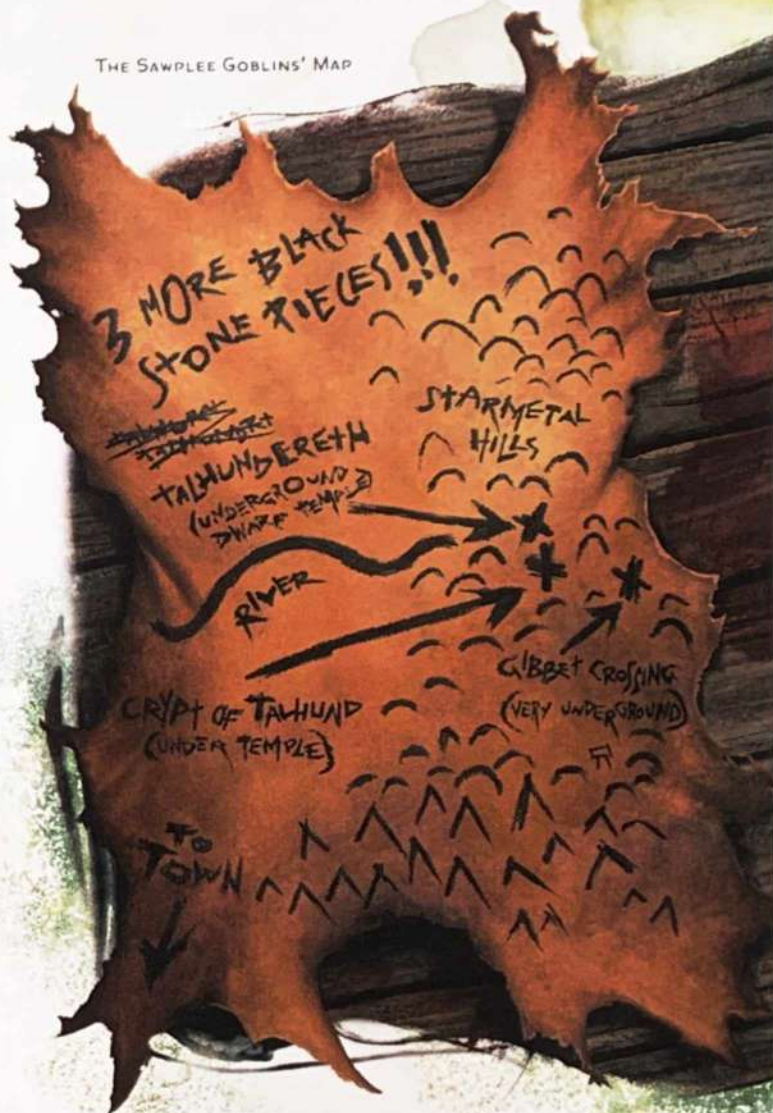 THE SAWPLEE GOBLINS' MAP
3 MORE BLACK
STONE PIECES!!!
STARMETAL
HILLS
TALHUNDERETH
(UNDERGROUND
DWARF TEMPLE)
RIVER
GIBBET CROSSING
(VERY UNDERGROUND)
CRYPT OF TALHUND
(UNDER TEMPLE)
TO
TOWN